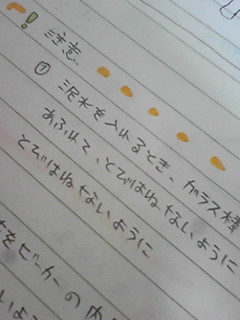 ！注意
① 沢水を入れるとき、ガラス棒
あふれて、とびはねないように
とびはねないように
をビーカーの内
ように